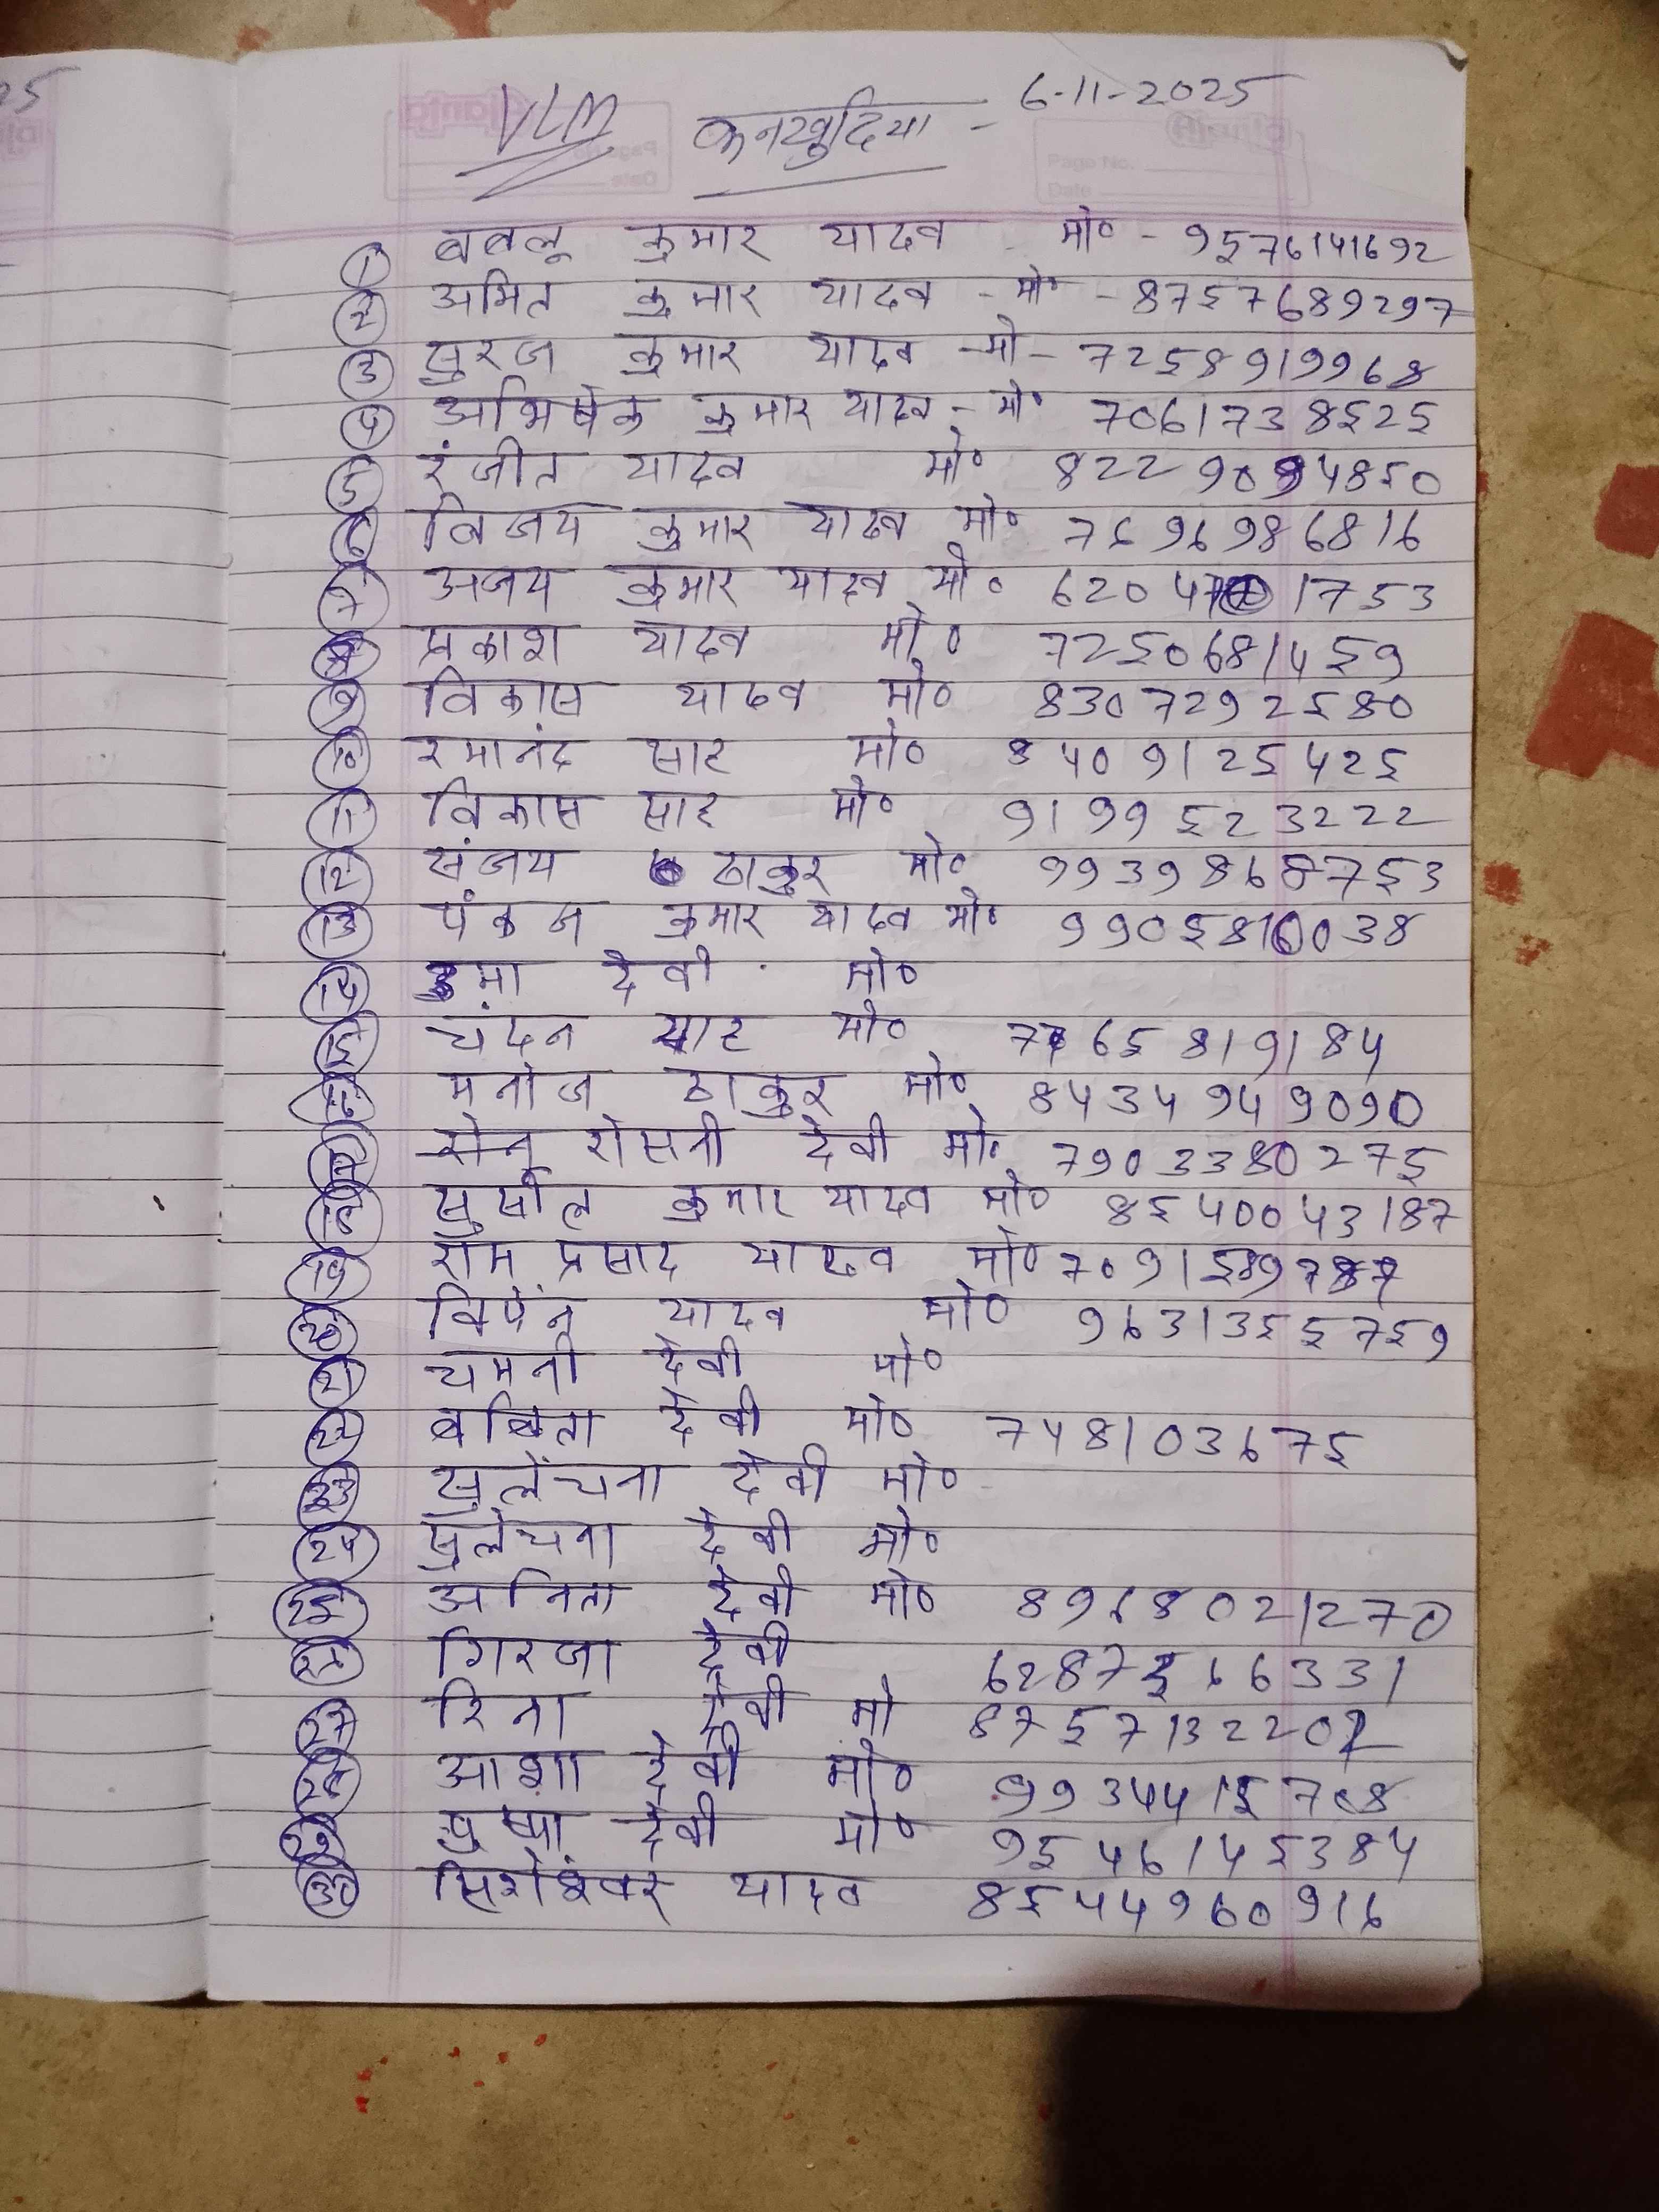 VLM कनखुदिया - 6-11-2025
① बबलू कुमार यादव मो० - 9576141692
② अमित कुमार यादव - मो० - 8757689297
③ सुरज कुमार यादव - मो - 7258919968
④ अभिषेक कुमार यादव - मो० 7061738525
⑤ रंजीत यादव मो० 8229094850
⑥ विजय कुमार यादव मो० 7696986816
⑦ अजय कुमार यादव मो० 620471753
⑧ प्रकाश यादव मो० 7250681459
⑨ विकास यादव मो० 8307292580
⑩ रमानंद साह मो० 8409125425
⑪ विकास साह मो० 9199523222
⑫ संजय ठाकुर मो० 9939868753
⑬ पंकज कुमार यादव मो० 9905810038
⑭ उमा देवी मो०
⑮ चंदन साह मो० 7765819184
⑯ मनोज ठाकुर मो० 8434949090
⑰ रोसनी देवी मो० 7903380275
⑱ सुसील कुमार यादव मो० 8540043187
⑲ राम प्रसाद यादव मो० 7091589787
⑳ विपेन यादव मो० 9631355759
㉑ चमनी देवी मो०
㉒ बबिता देवी मो० 748103675
㉓ सुलेंचना देवी मो०
㉔ सुलेचना देवी मो०
㉕ अनिता देवी मो० 8968021270
㉖ गिरजा देवी 6287566331
㉗ रिना देवी मो 8757132202
㉘ आशा देवी मो० 9934415708
㉙ पुष्पा देवी मो० 9546145384
㉚ यादव 8544960916